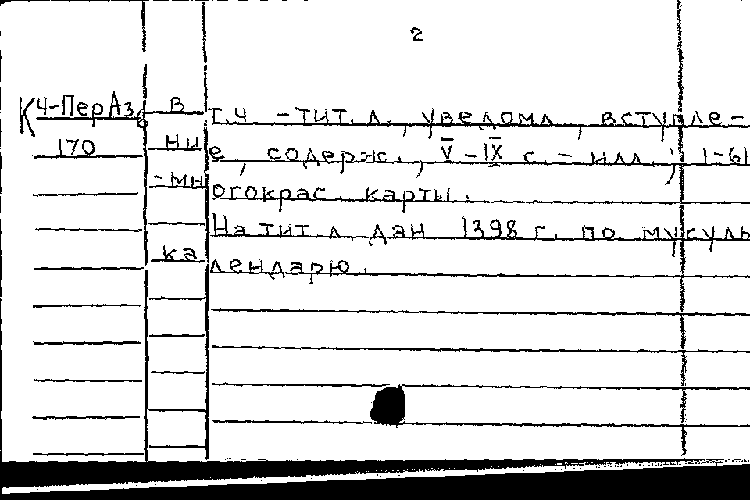 2
К4-ПерАз6 В т.ч - тит. л., уведомл, вступле-
170 ние, содерж., V-IX с. - илл.; 1-61
- многокрас. карты.
На тит. л. дан 1398 г. по мусуль
календарю.